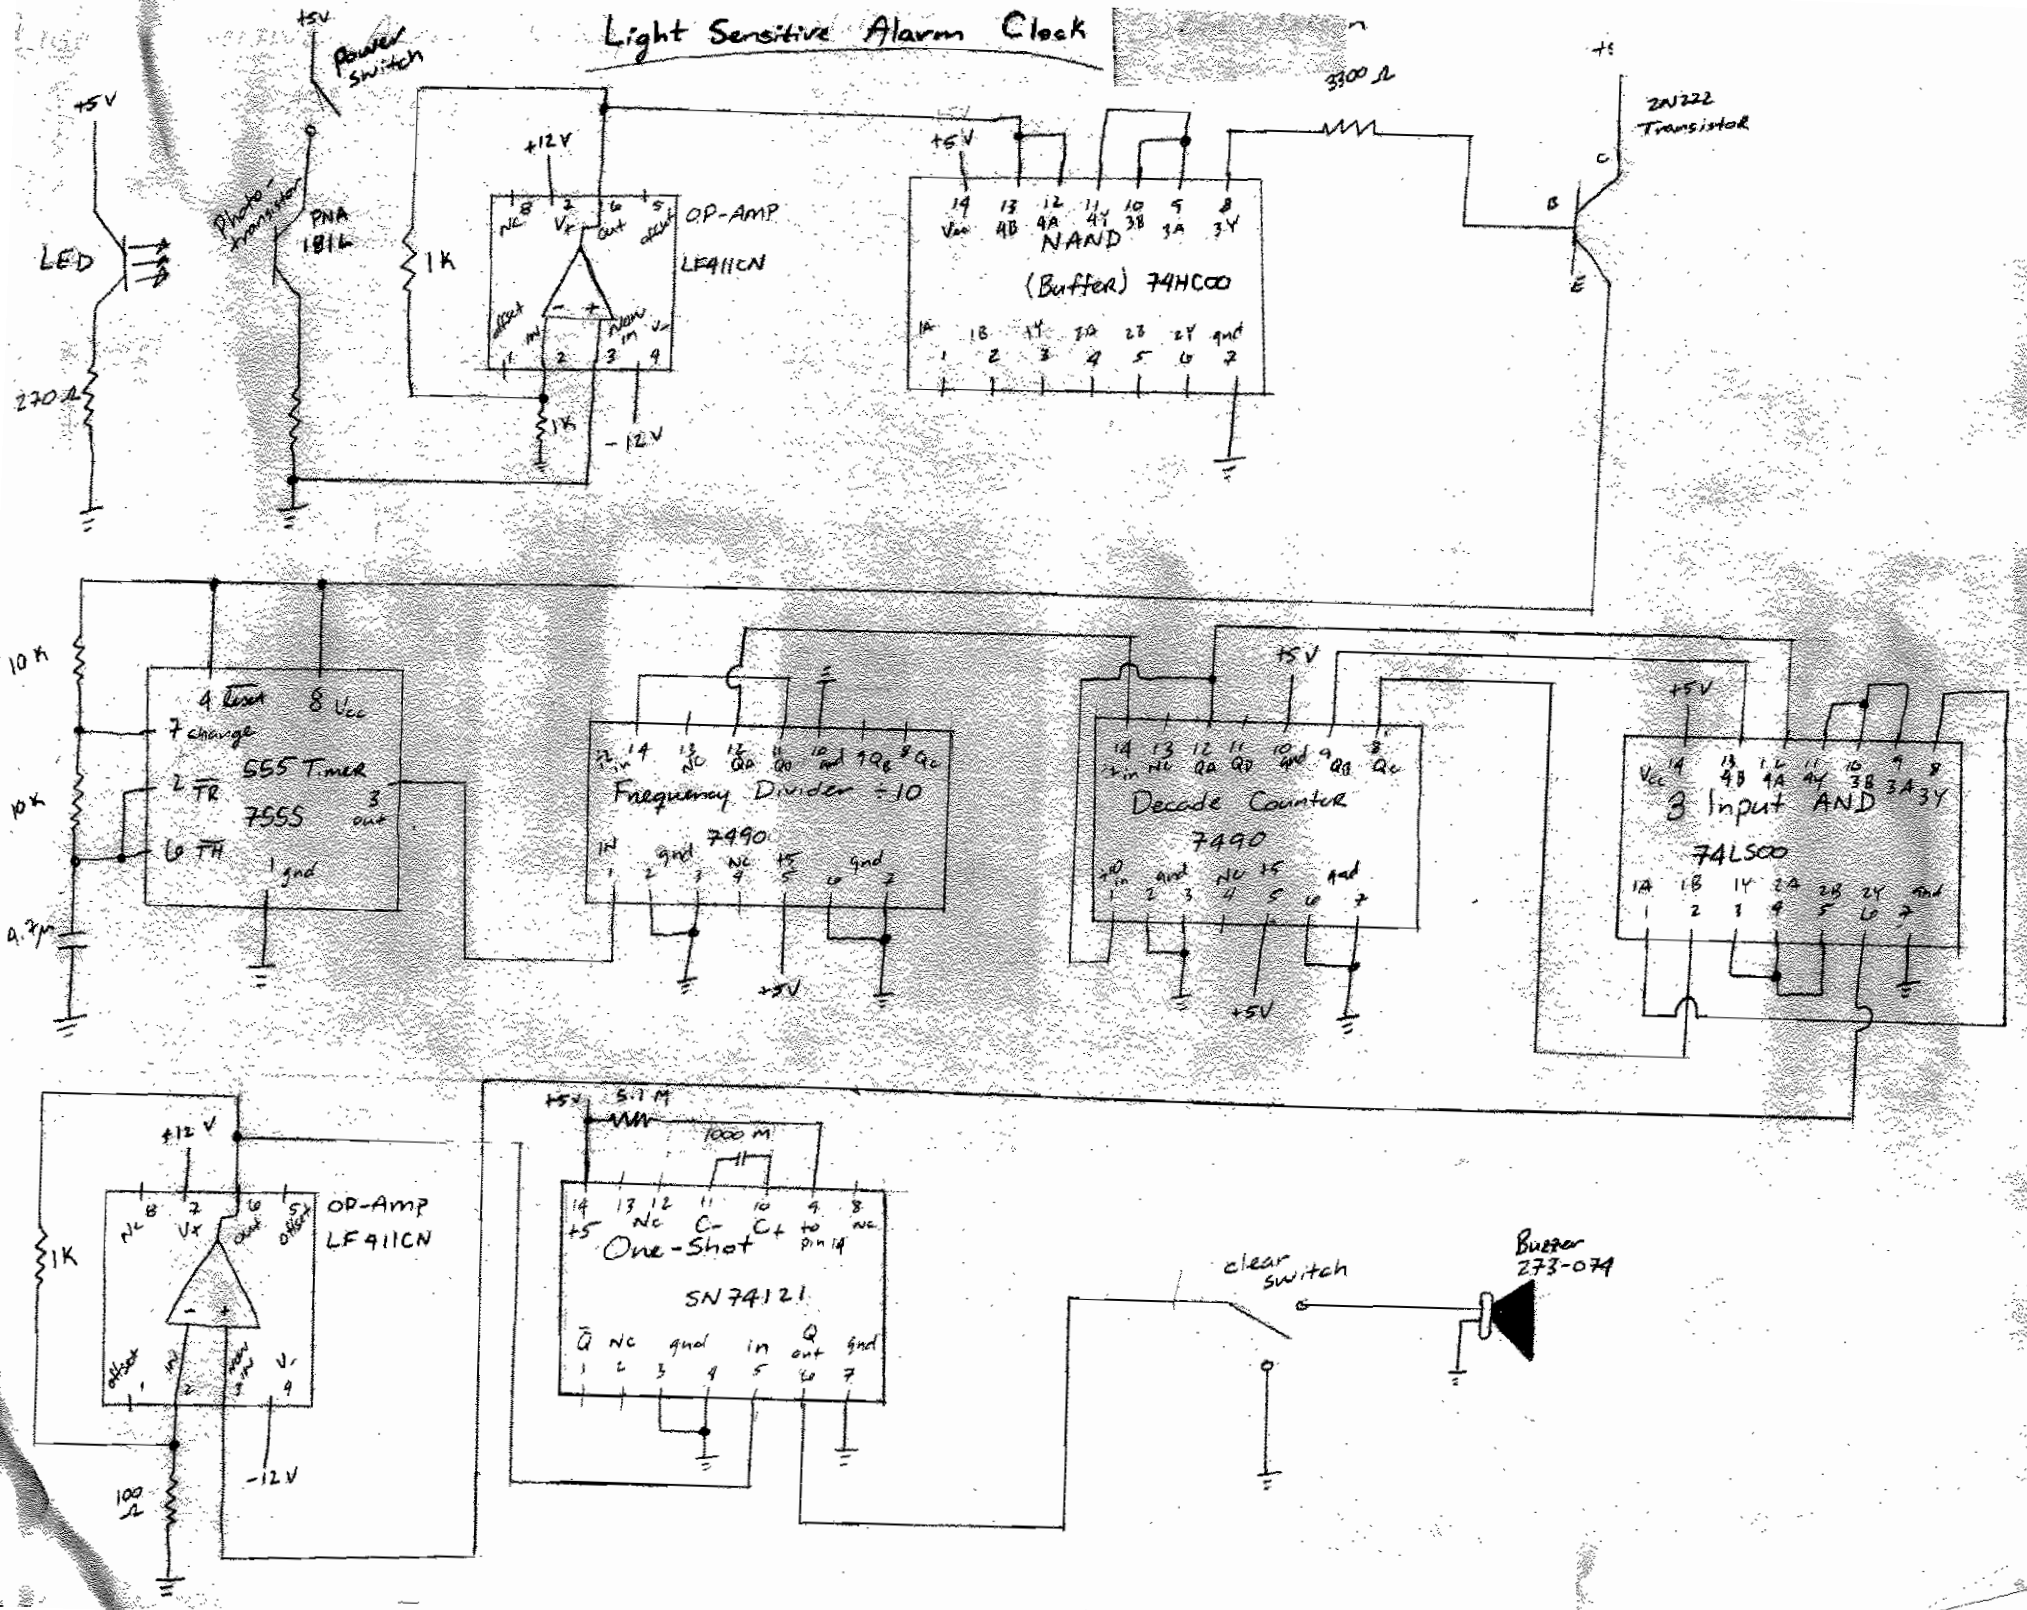 Light Sensitive Alarm Clock
+5V
Power
Switch
+5V
LED
270Ω
Photo-
transistor
PNA
181L
1K
+12V
8 7 6 5
NC V+ out offset
OP-AMP
LF411CN
offset IN NON IN V-
1 2 3 4
1K
-12V
+5V
14 13 12 11 10 9 8
Vcc 4B 4A 4Y 3B 3A 3Y
NAND
(Buffer) 74HC00
1A 1B 1Y 2A 2B 2Y gnd
1 2 3 4 5 6 7
3300 Ω
2N222
Transistor
C
B
E
10K
10K
4.7μ
4 Reset 8 Vcc
7 change
555 Timer
2 TR
3
out
7555
6 TH
1 gnd
14 13 12 11 10 9 QB 8 QC
in NC QA QD gnd
Frequency Divider ÷10
7490
IN gnd NC +5 gnd
1 2 3 4 5 6 7
+5V
+5V
14 13 12 11 10 9 8
in NC QA QD gnd QB QC
Decade Counter
7490
in gnd NC +5 gnd
1 2 3 4 5 6 7
+5V
+5V
14 13 12 11 10 9 8
Vcc 4B 4A 4Y 3B 3A 3Y
3 Input AND
74LS00
1A 1B 1Y 2A 2B 2Y gnd
1 2 3 4 5 6 7
+12V
8 7 6 5
NC V+ out offset
OP-AMP
LF411CN
1K
offset IN NON IN V-
1 2 3 4
100
Ω
-12V
+5V 5.1M
1000 M
14 13 12 11 10 9 8
+5 NC C- C+ to pin 14 NC
One-Shot
SN74121
Q NC gnd in Q out gnd
1 2 3 4 5 6 7
clear
switch
Buzzer
273-074